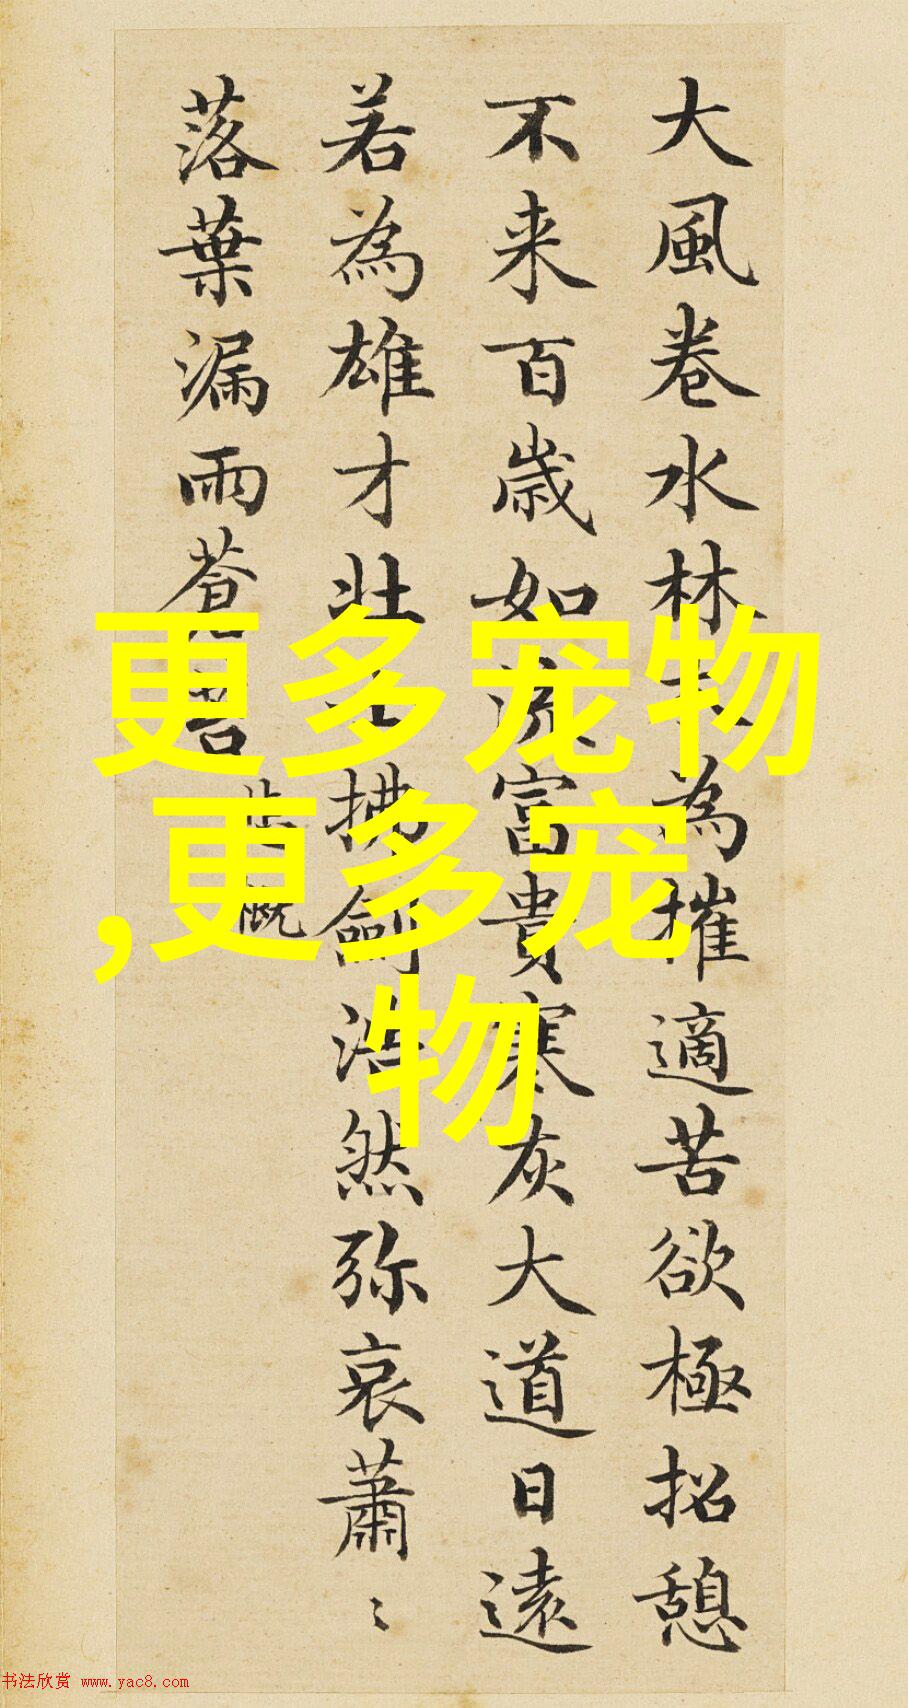 大風卷水林為摧適苦欲極招憩
不来百歲如流富貴寒灰大道日遠
若為雄才壯拂劍浩然弥哀蕭〻
落葉漏雨蒼苔
慨
更多宠物
,更多宠
物
书法欣赏 www.yac8.com